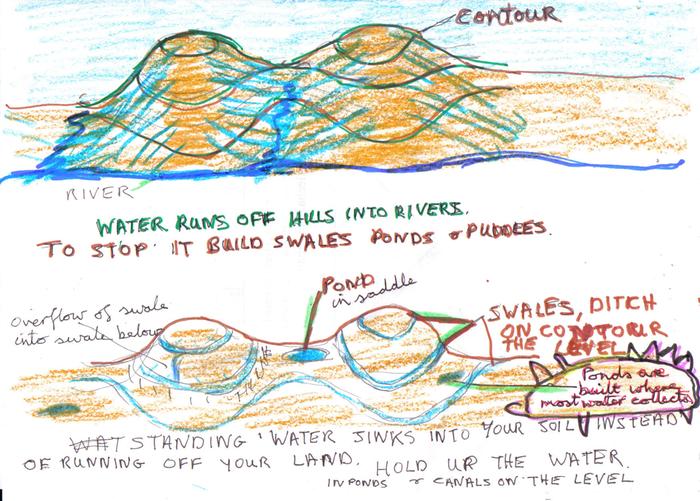 CONTOUR
RIVER
WATER RUNS OFF HILLS INTO RIVERS.
TO STOP IT BUILD SWALES PONDS & PUDDLES.
POND
in saddle
Overflow of swale
into swale below
SWALES, DITCH
ON CONTOUR
THE LEVEL
Ponds are
built where
most water collects
WAT STANDING WATER SINKS INTO YOUR SOIL INSTEAD
OF RUNNING OFF YOUR LAND. HOLD UP THE WATER.
IN PONDS & CANALS ON THE LEVEL